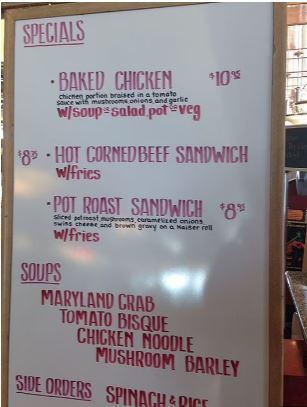 SPECIALS
• BAKED CHICKEN $10 95
chicken portion braised in a tomato
sauce with mushrooms, onions, and garlic
w/soup or salad, pot or veg
$8 75 • HOT CORNEDBEEF SANDWICH
w/fries
• POT ROAST SANDWICH $8 95
Sliced pot roast, mushrooms, caramelized onions,
swiss cheese and brown gravy on a Kaiser roll
w/fries
SOUPS
MARYLAND CRAB
TOMATO BISQUE
CHICKEN NOODLE
MUSHROOM BARLEY
SIDE ORDERS SPINACH & RICE